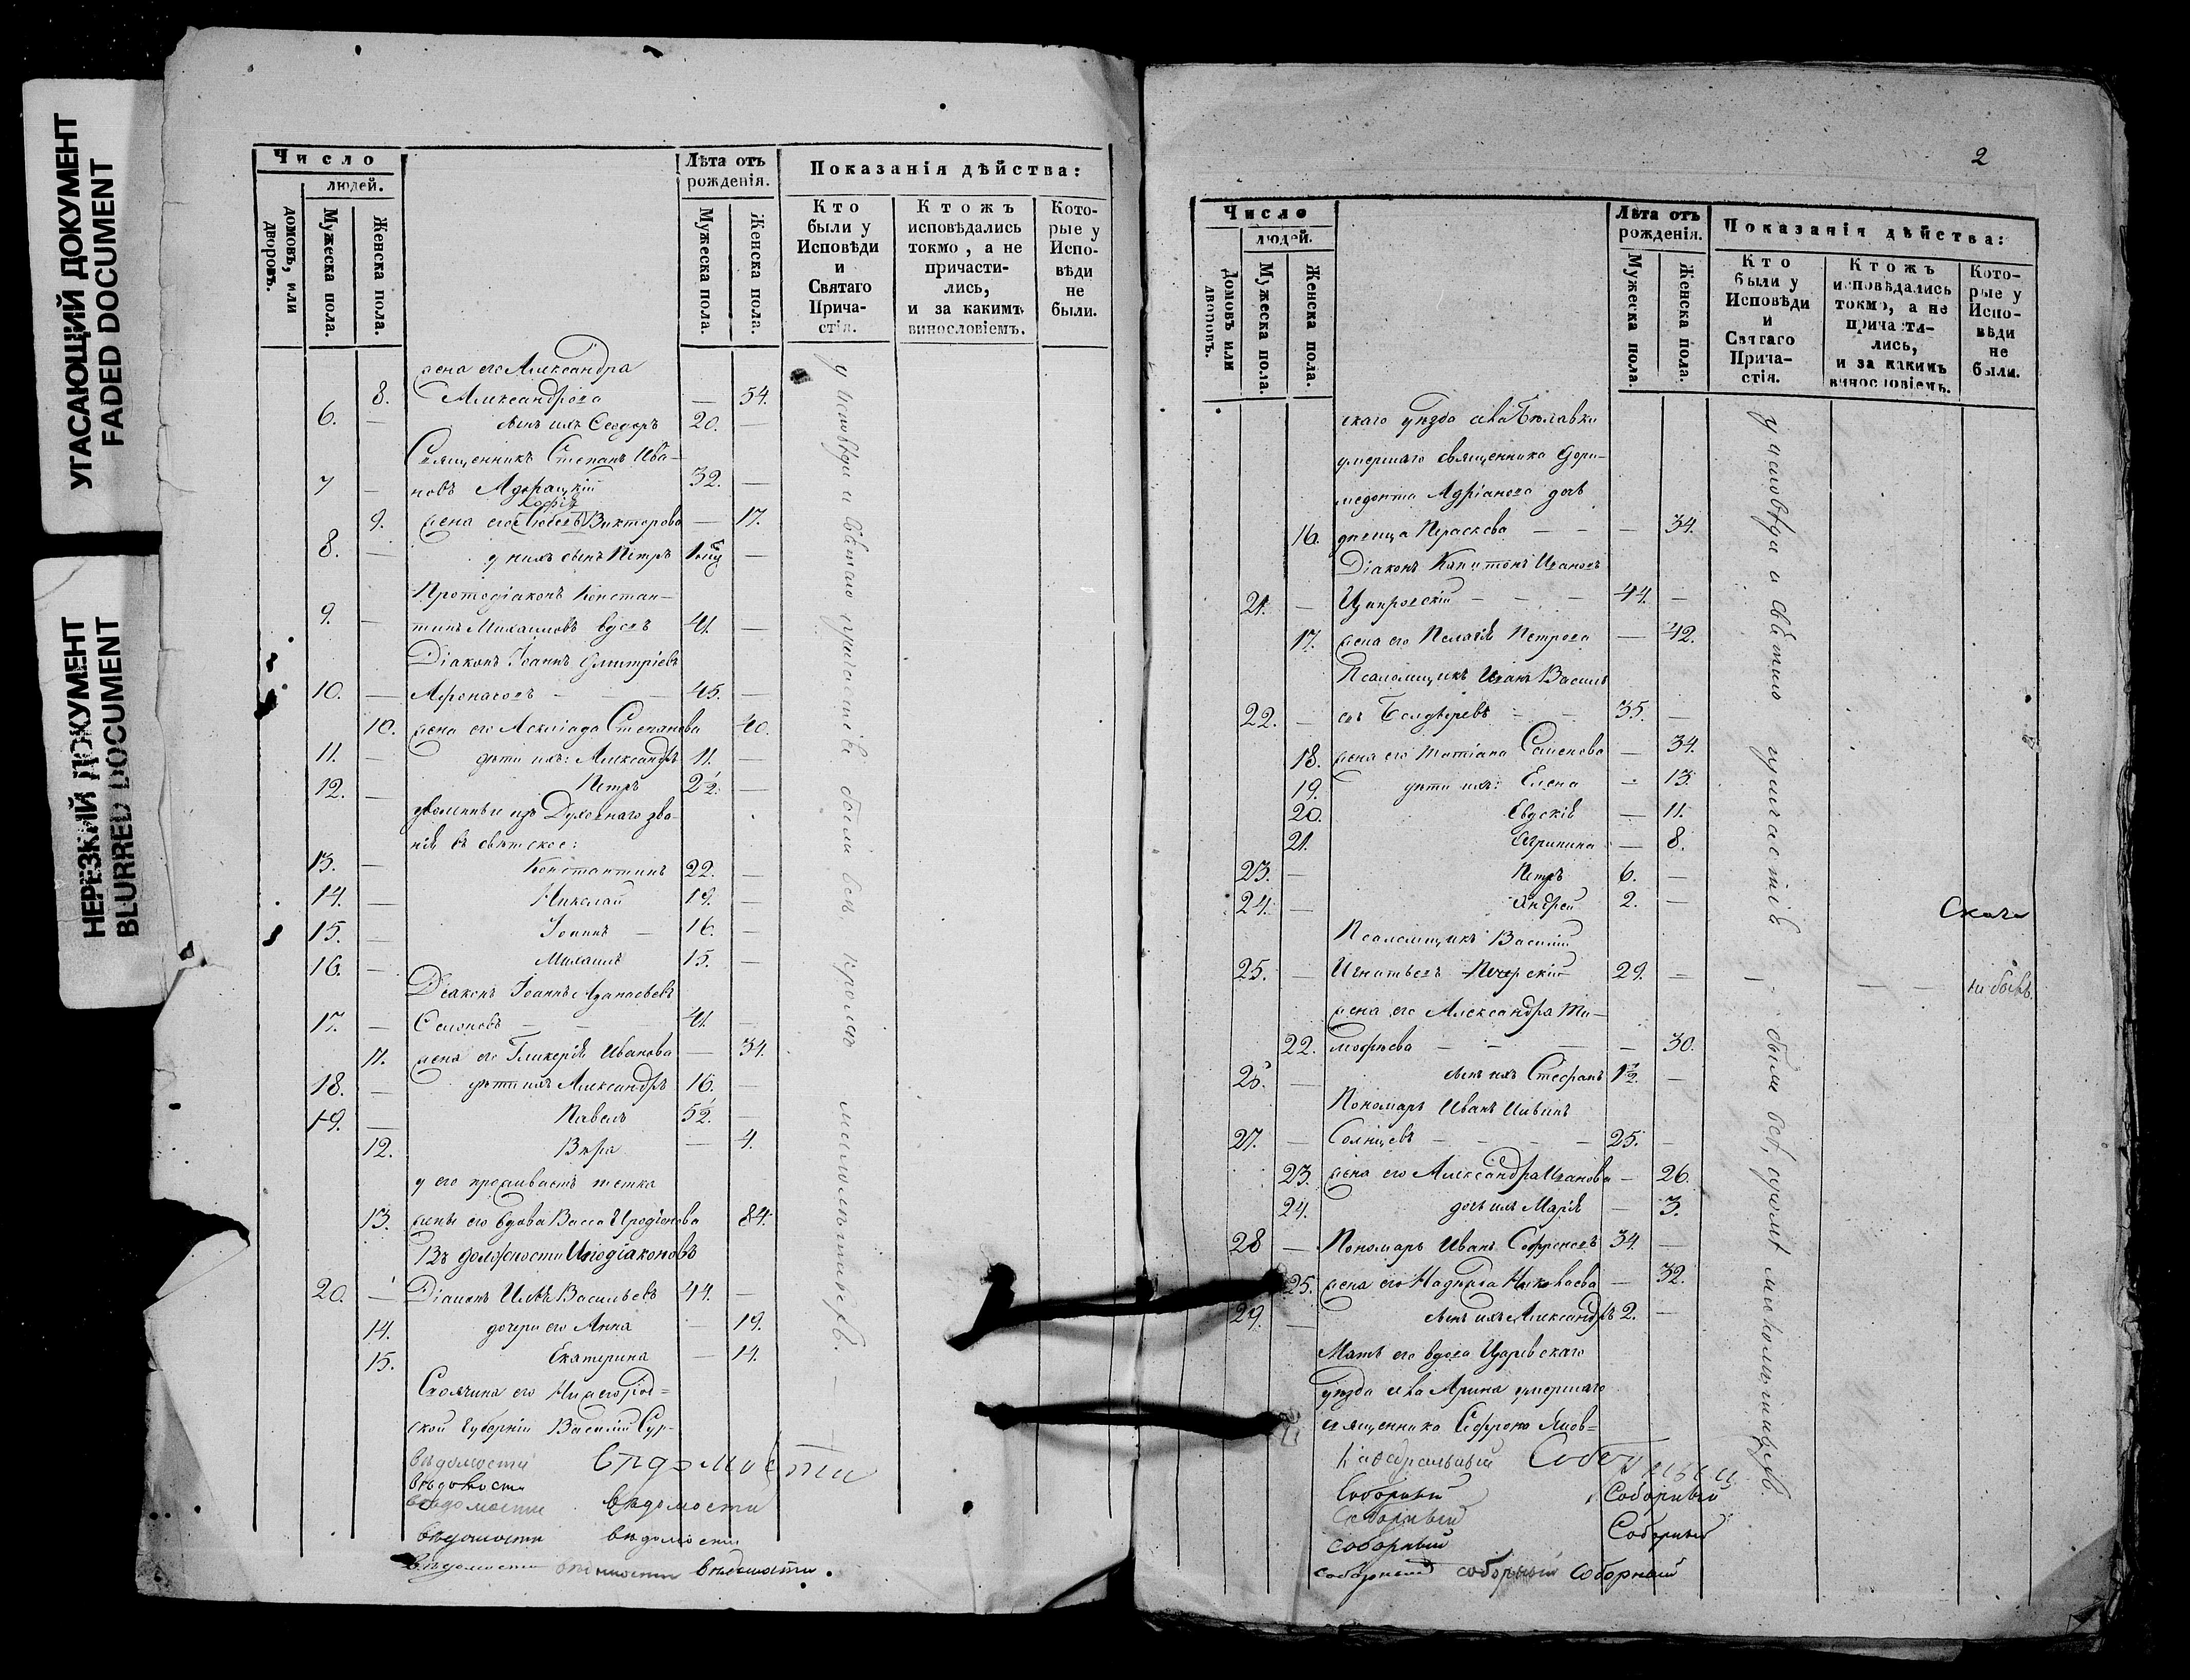 УГАСАЮЩИЙ ДОКУМЕНТ
FADED DOCUMENT
НЕРЕЗКИЙ ДОКУМЕНТ
BLURRED DOCUMENT
Число
людей.
домовъ, или дворовъ.
Мужеска пола.
Женска пола.
Лѣта отъ рожденія.
Мужеска пола.
Женска пола.
Показанія дѣйства:
Кто были у Исповѣди и Святаго Прича-стія.
Ктожъ исповѣдались токмо, а не причасти-лись, и за какимъ винословіемъ.
Кото-рые у Испо-вѣди не были.
жена его Александра
8. Александрова — 54.
6. — сынъ ихъ Ѳеодоръ 20. —
Священникъ Степанъ Ива-
7 — новъ Адорацкій 32. —
Софія
9. жена его Викторова — 17.
8. — у нихъ сынъ Петръ
Протодіаконъ Констан-
9. — тинъ Михаиловъ вдовъ 41. —
Діаконъ Іоаннъ Димитріевъ
10. — Афонасовъ — — 45. —
10. жена его Степанова 40.
11. — дѣти ихъ: Александръ 11. —
12. — Петръ 2½. —
уволенные изъ Духовнаго зва-
нія въ свѣтское:
13. — Константинъ 22. —
14. — Николай 19. —
15. — Іоаннъ — 16. —
16. — Михаилъ 15. —
Діаконъ Іоаннъ Аѳанасьевъ
17. — Семоновъ — — 41. —
11. жена его Гликерія Иванова — 34.
18. — дѣти ихъ Александръ 16. —
19. — Павелъ 5½. —
12. Вѣра — 4.
у его проживаетъ тетка
13. жены его вдова Васса Иродіонова 84.
Въ должности Иподіаконовъ
20. — Діаконъ Илья Васильевъ 44. —
14. дочери его Анна — 19.
15. Екатерина — 14.
его Нижегород=
ской Губерніи Василій Сур-
вѣдомости вѣдомости
вѣдомости
вѣдомости вѣдомости
вѣдомости вѣдомости
вѣдомости вѣдомости вѣдомости.
у исповѣди и святаго причастія были всѣ кромѣ малолѣтнихъ. —
2
Число
людей.
Домовъ или дворовъ.
Мужеска пола.
Женска пола.
Лѣта отъ рожденія.
Мужеска пола.
Женска пола.
Показанія дѣйства:
Кто были у Исповѣди и Святаго Прича-стія.
Ктожъ исповѣдались токмо, а не причасти-лись, и за какимъ винословіемъ.
Кото-рые у Испо-вѣди не были.
скаго уѣзда села Бюлавки
умершаго священника Дори-
медонта Адріанова дочь
16. дѣвица Параскева — — — 34.
Діаконъ Капитонъ Ивановъ
21. — Ципровскій — — — 44. —
17. жена его Пелагія Петрова — 42.
Псаломщикъ Иванъ Василь
22. — евъ — — 35. —
18. жена его Татіана Семенова — 34.
19. дѣти ихъ: Елена — 13.
20. Евдокія — 11.
21. Агрипина — 8.
23. — Петръ 6. —
24. — Андрей 2. —
Псаломщикъ Василій
25. — Игнатьевъ Печерскій 29. — — — — не былъ.
жена его Александра Ти-
22. мофѣева — — — — 30.
сынъ ихъ Стефанъ 1½. —
Пономарь Иванъ Ильинъ
27. — Солнцевъ — — — — 25. —
23. жена его Александра Иванова — 26.
24. дочь ихъ Марія — 3.
28 — Пономарь Иванъ Софроновъ 34. —
25. жена его Надежда Николаева — 32.
29. — сынъ ихъ Александръ 2. —
Мать его вдова Царевскаго
уѣзда села Арина умершаго
священника
Каѳедральный Соборный
Соборный Соборный
Соборный
соборный Соборный
соборный соборный соборный
у исповѣди и святаго причастія — были всѣ, кромѣ малолѣтнихъ.